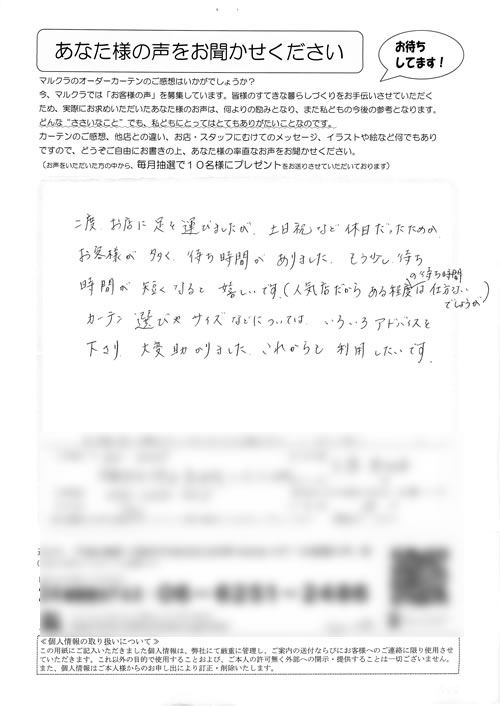 あなた様の声をお聞かせください
お待ち
してます!
マルクラのオーダーカーテンのご感想はいかがでしょうか?
今、マルクラでは「お客様の声」を募集しています。皆様のすてきな暮らしづくりをお手伝いさせていただく
ため、実際にお求めいただいたあなた様のお声は、何よりの励みとなり、また私どもの今後の参考となります。
どんな“ささいなこと”でも、私どもにとってはとてもありがたいことなのです。
カーテンのご感想、他店との違い、お店・スタッフにむけてのメッセージ、イラストや絵など何でもあり
ですので、どうぞご自由にお書きの上、あなた様の率直なお声をお聞かせください。
(お声をいただいた方の中から、毎月抽選で10名様にプレゼントをお送りさせていただいております)
二度、お店に足を運びましたが、土日祝など休日だったためか、
お客様が多く、待ち時間がありました。もう少し待ち
時間が短くなると嬉しいです。(人気店だからある程度の待ち時間は仕方ない
でしょうか)
カーテン選びやサイズなどについては、いろいろアドバイスを
下さり、大変助かりました。これからも利用したいです。
06-6251-2486
≪個人情報の取り扱いについて≫
この用紙にご記入いただきました個人情報は、弊社にて厳重に管理し、ご案内の送付ならびにお客様へのご連絡に限り使用させ
ていただきます。これ以外の目的で使用することおよび、ご本人の許可無く外部への開示・提供することは一切ございません。
また、個人情報はご本人様からのお申し出により訂正・削除いたします。